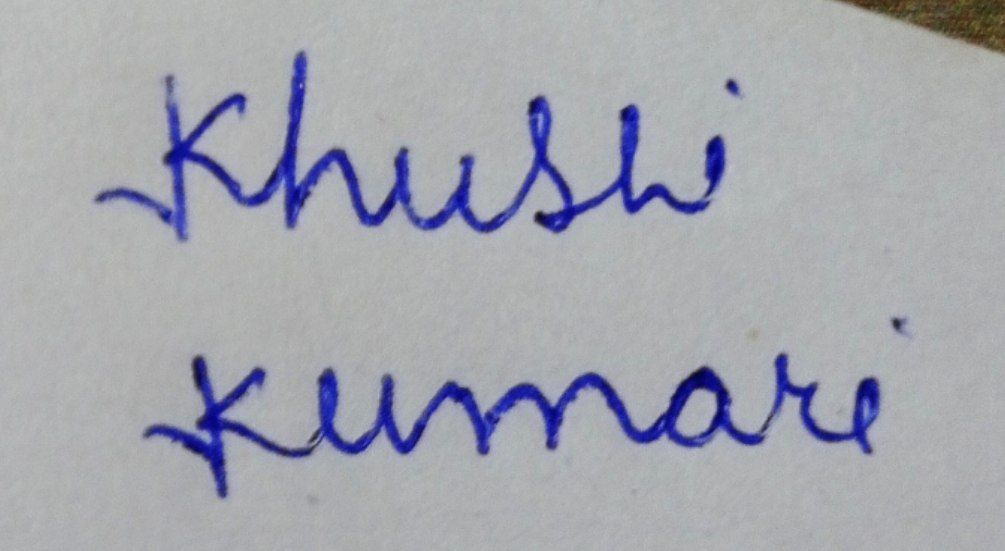 Khushi
Kumari